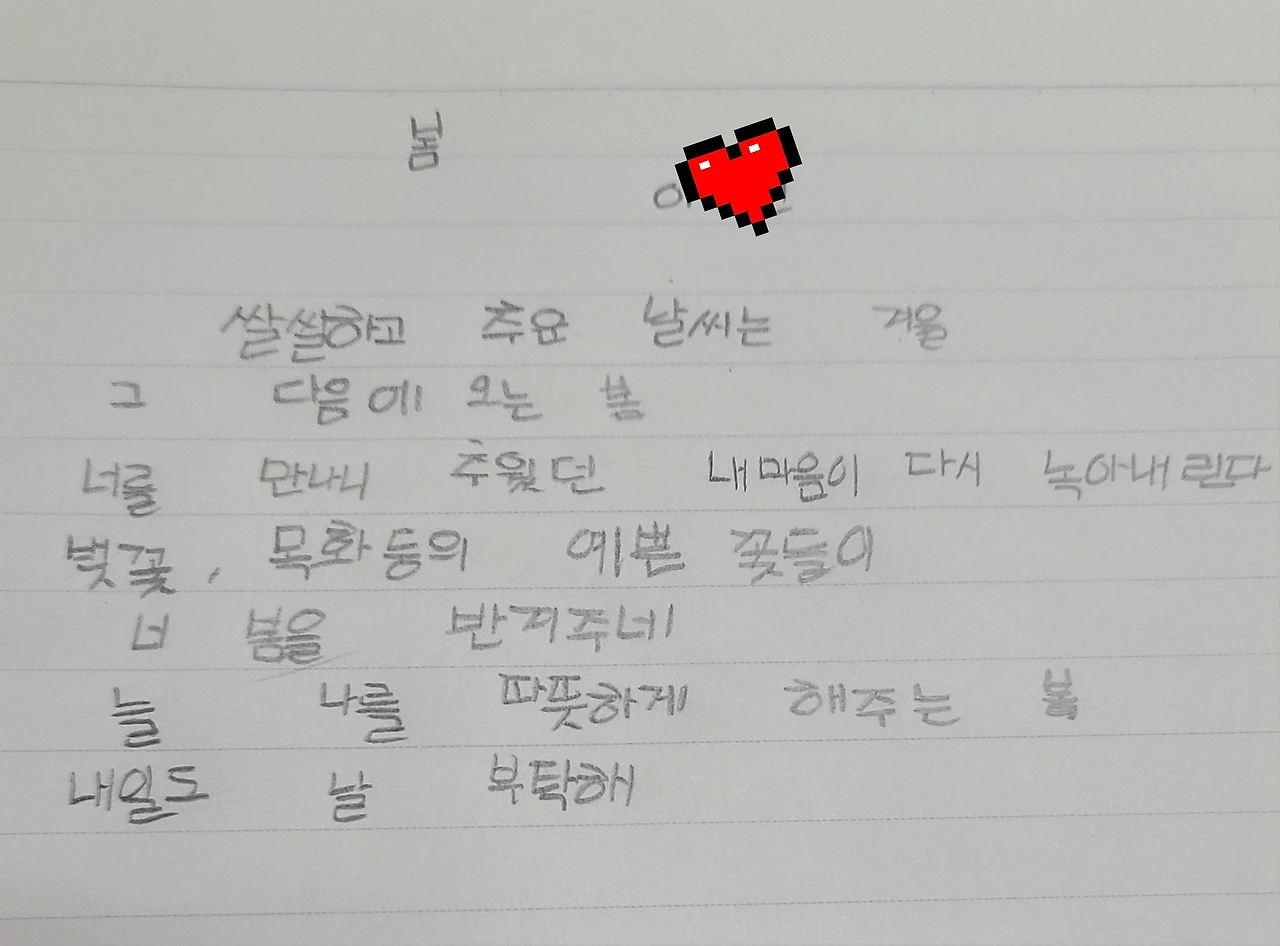 봄
쌀쌀하고 추요 날씨는 겨울
그 다음에 오는 봄
너를 만나니 추웠던 내마음이 다시 녹아내린다
벚꽃, 목화등의 예쁜 꽃들이
너 봄을 반겨주네
늘 나를 따뜻하게 해주는 봄
내일도 날 부탁해